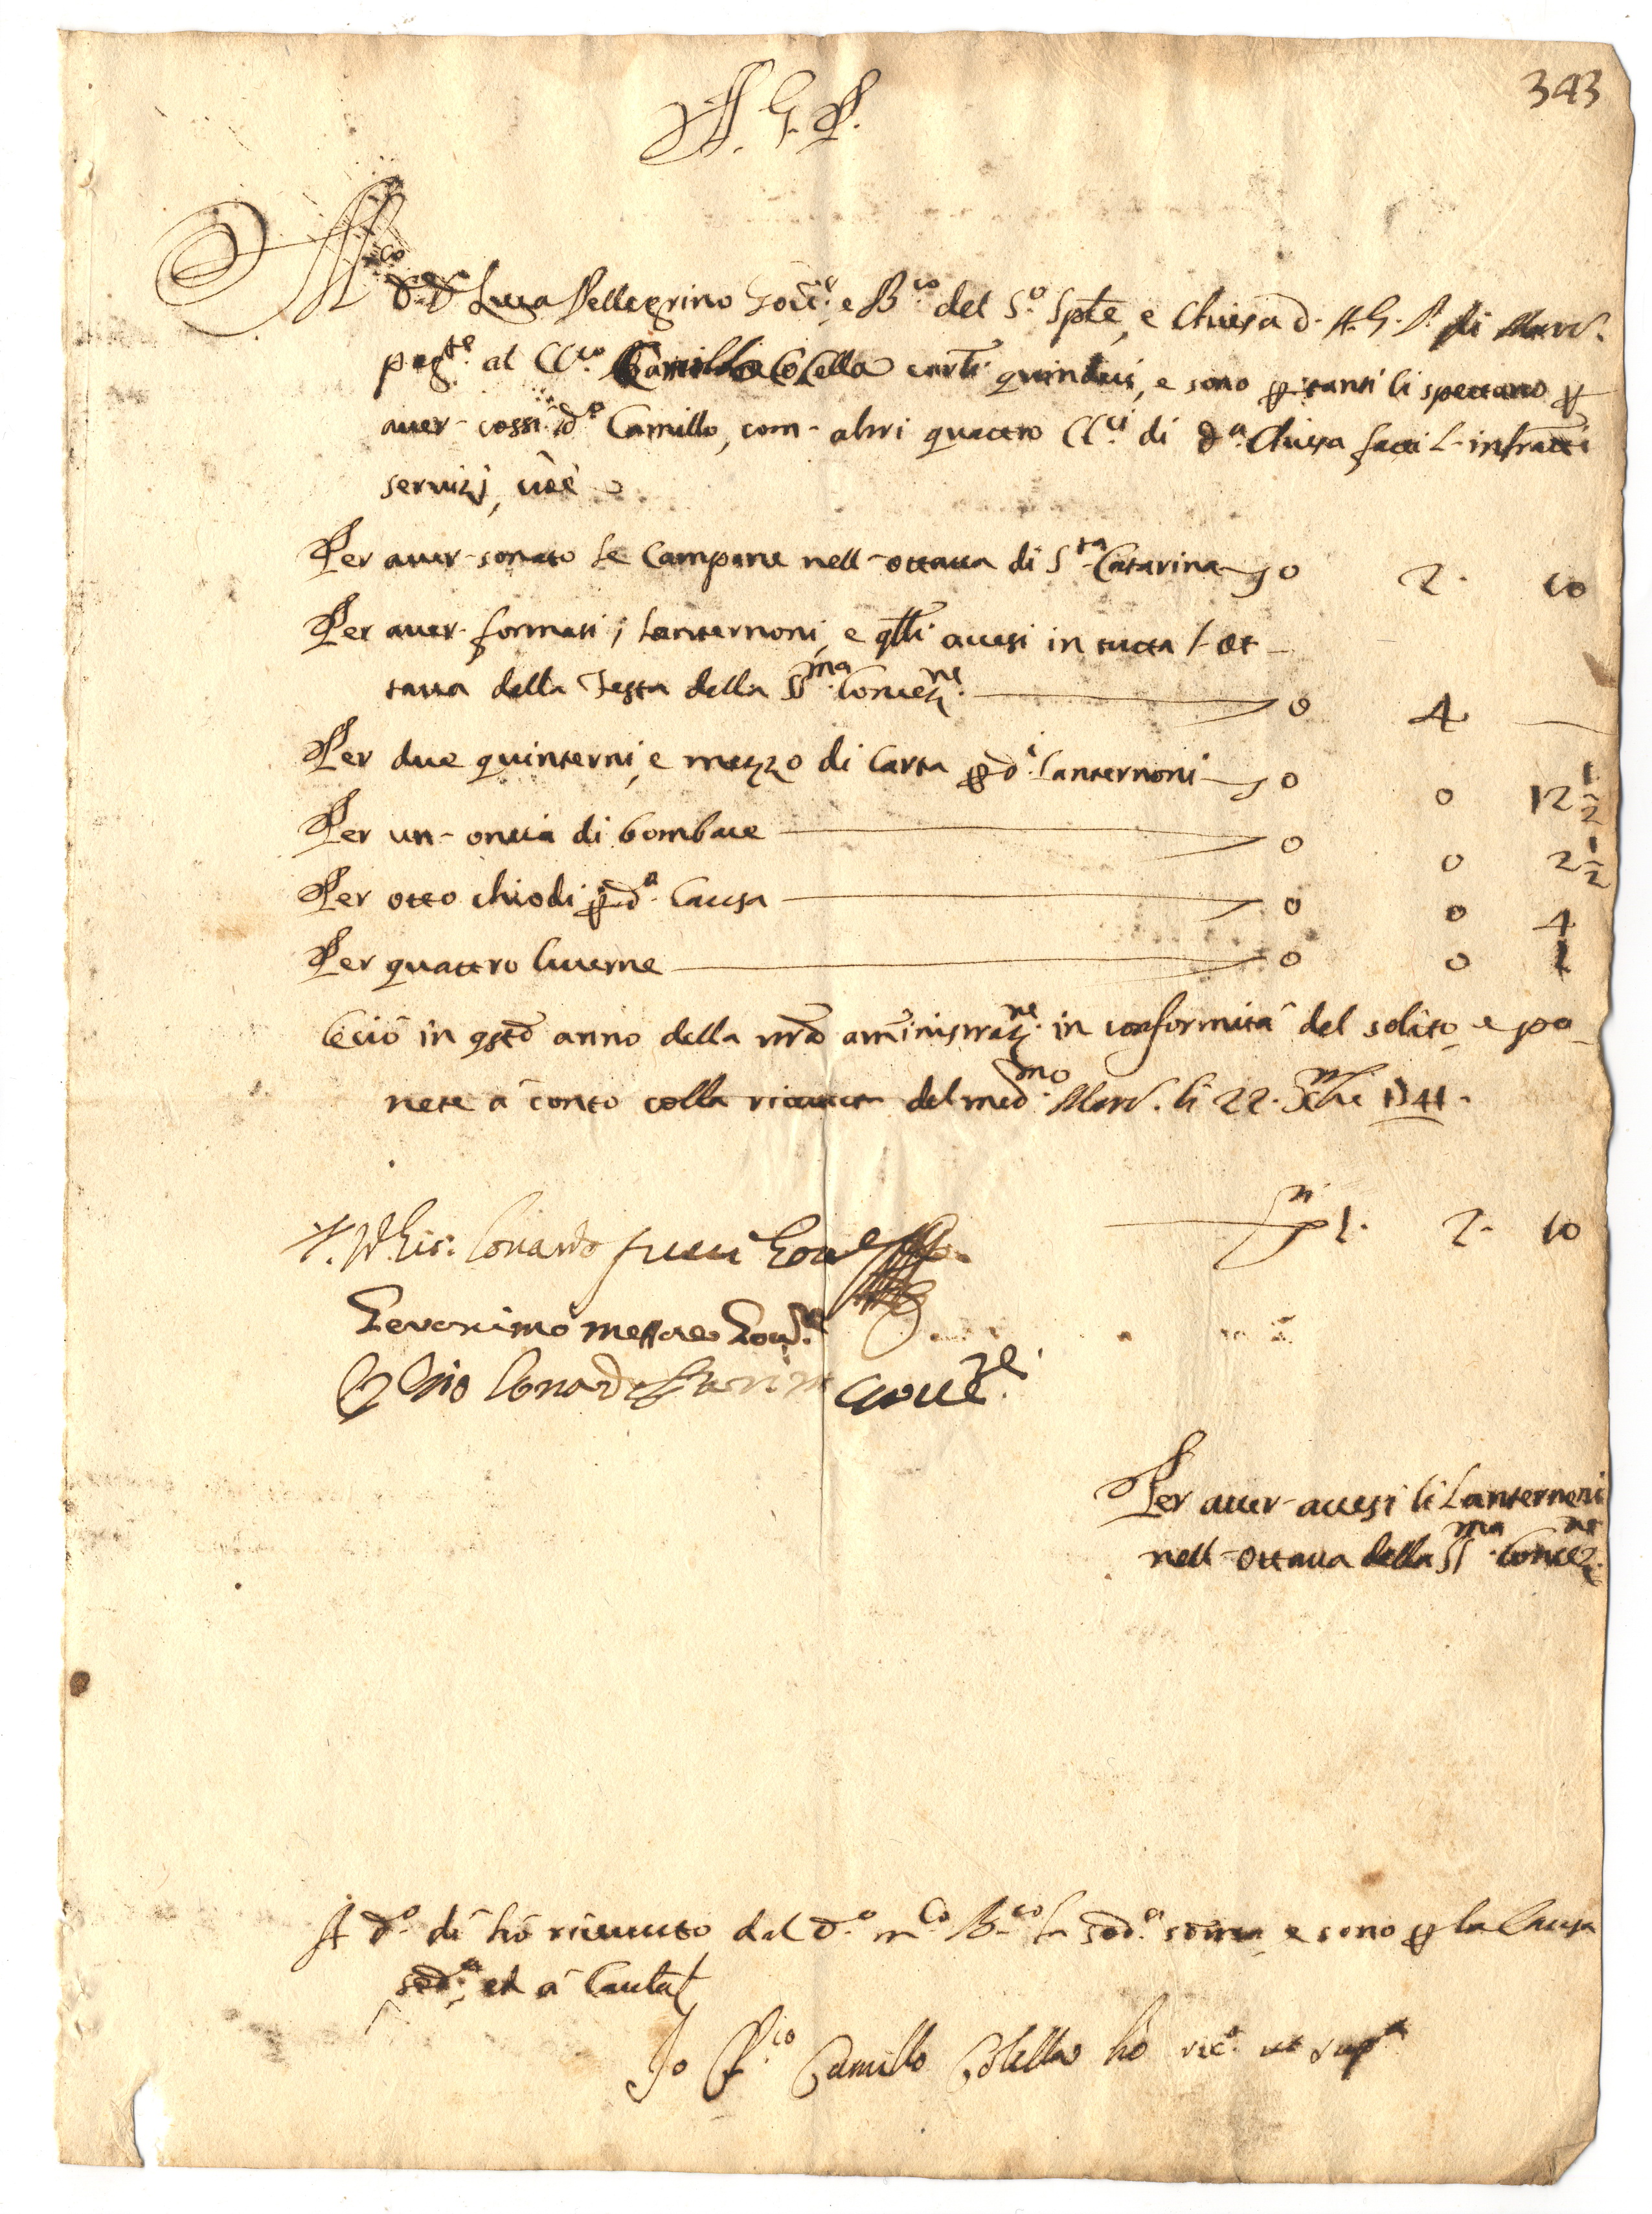 343
A. G. P.
M.co D.r D. Luca Pellegrino Gov.e, e B.co del S.o Sple, e Chiesa d. A. G. P. di Marc.
pag.te al Cl.co Camillo Colella carli quindici, e sono p tanti li spettano p
aver- cossi d.o Camillo, com- altri quattro Cl.ci di d.a Chiesa fatti l-infratti
servizij, vʒ è
Per aver-sonato le Campane nell-ottava di S.ta Catarina 0 2. 10
Per aver-formati i lanternoni, e qlli accesi in tutta l-ot-
tava della Festa della SS.ma Concez.ne 0 4 —
Per due quinterni, e mezzo di carta p d.i lanternoni 0 0 12½
Per un-oncia di bombace 0 0 2½
Per otto chiodi p d.a causa 0 0 4
Per quattro lucerne 0 0 1
E ciò in qsto anno della nra aministraz.ne in conformità del solito, e po-
nete à conto colla ricevuta del med.mo Marc. li 22. Xbre 1741.
1. 2. 10
Lonardo Gov.e
Geronimo Gov.re
Lonardo Gove.re
Per aver-accesi li Lanternoni
nell-ottava della SS.ma Concez.ne
A d.o dì hò ricevuto dal d.o m.co B.co la sod.a soma, e sono p la causa
sod.a et à cautela
Io Cl.co Camillo Colella hò ric.to ut sup.a